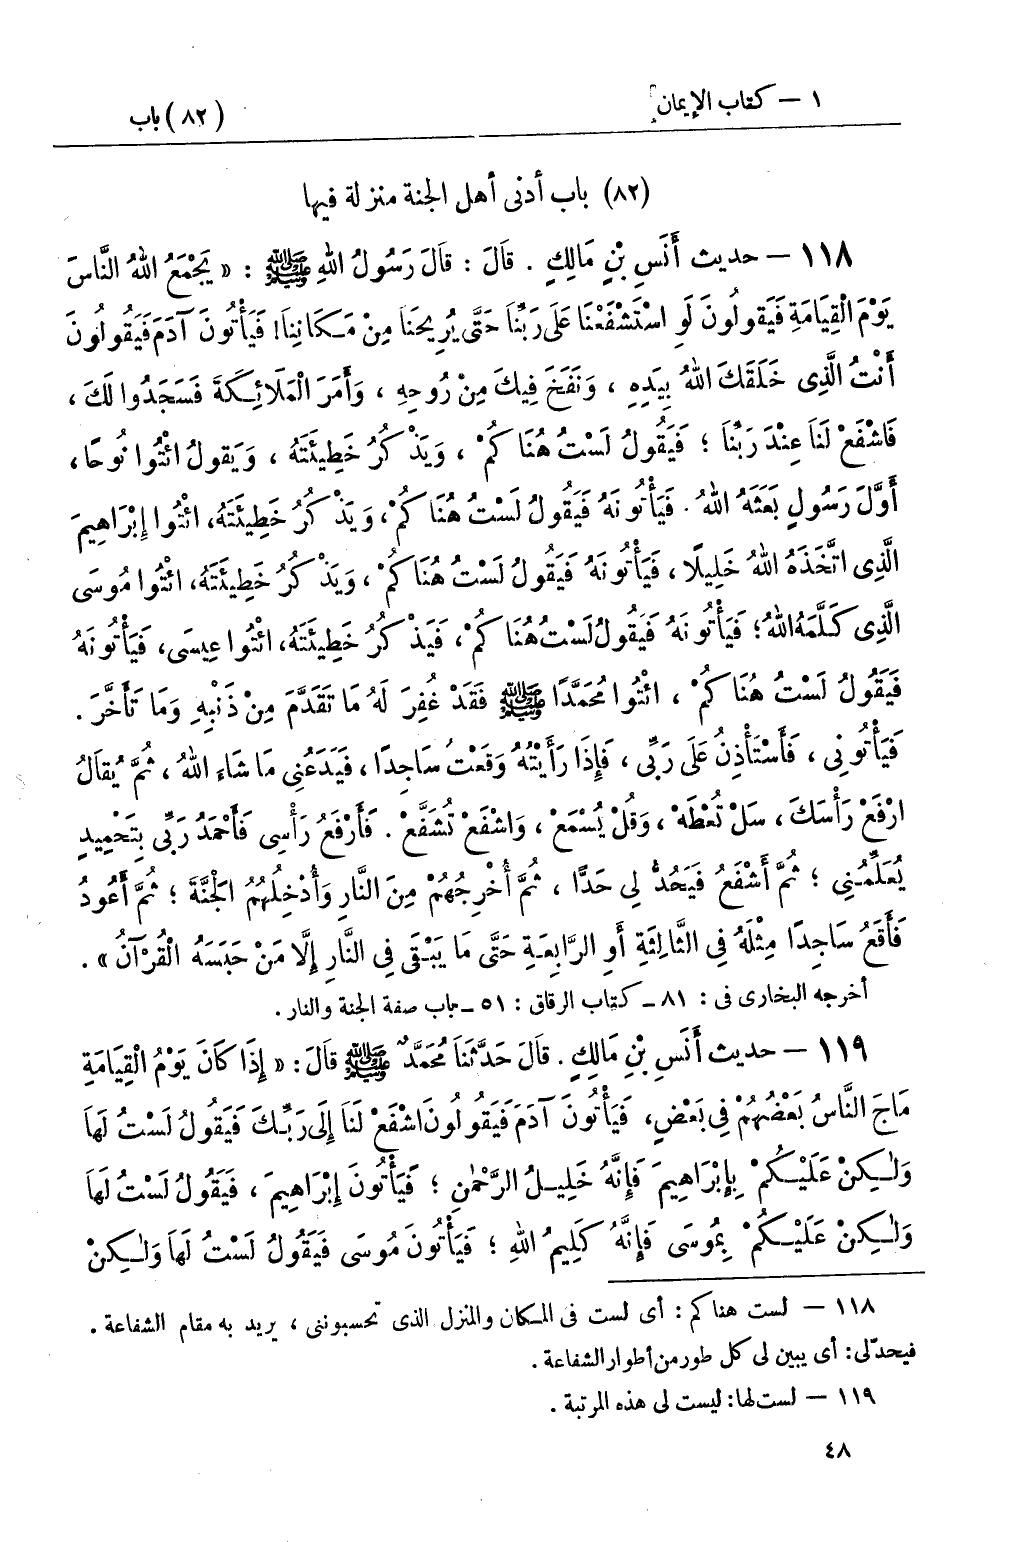 ١ – كتاب الإيمان
(٨٢) باب
(٨٢) باب أدنى أهل الجنة منزلة فيها
١١٨ – حديث أَنَسِ بْنِ مَالِكٍ . قَالَ : قَالَ رَسُولُ اللهِ ﷺ : « يَجْمَعُ اللهُ النَّاسَ
يَوْمَ الْقِيَامَةِ فَيَقُولُونَ لَوِ اسْتَشْفَعْنَا عَلَى رَبِّنَا حَتَّى يُرِيحَنَا مِنْ مَكَانِنَا! فَيَأْتُونَ آدَمَ فَيَقُولُونَ
أَنْتَ الَّذِى خَلَقَكَ اللهُ بِيَدِهِ ، وَنَفَخَ فِيكَ مِنْ رُوحِهِ ، وَأَمَرَ الْمَلَائِكَةَ فَسَجَدُوا لَكَ ،
فَاشْفَعْ لَنَا عِنْدَ رَبِّنَا ؛ فَيَقُولُ لَسْتُ هُنَاكُمْ ، وَيَذْكُرُ خَطِيئَتَهُ ، وَيَقُولُ ائْتُوا نُوحًا ،
أَوَّلَ رَسُولٍ بَعَثَهُ اللهُ . فَيَأْتُونَهُ فَيَقُولُ لَسْتُ هُنَاكُمْ ، وَيَذْكُرُ خَطِيئَتَهُ ، ائْتُوا إِبْرَاهِيمَ
الَّذِى اتَّخَذَهُ اللهُ خَلِيلًا ، فَيَأْتُونَهُ فَيَقُولُ لَسْتُ هُنَاكُمْ ، وَيَذْكُرُ خَطِيئَتَهُ ، ائْتُوا مُوسَى
الَّذِى كَلَّمَهُ اللهُ ؛ فَيَأْتُونَهُ فَيَقُولُ لَسْتُ هُنَاكُمْ ، فَيَذْكُرُ خَطِيئَتَهُ ، ائْتُوا عِيسَى ، فَيَأْتُونَهُ
فَيَقُولُ لَسْتُ هُنَاكُمْ ، ائْتُوا مُحَمَّدًا ﷺ فَقَدْ غُفِرَ لَهُ مَا تَقَدَّمَ مِنْ ذَنْبِهِ وَمَا تَأَخَّرَ .
فَيَأْتُونِى ، فَأَسْتَأْذِنُ عَلَى رَبِّى ، فَإِذَا رَأَيْتُهُ وَقَعْتُ سَاجِدًا ، فَيَدَعُنِى مَا شَاءَ اللهُ ، ثُمَّ يُقَالُ
ارْفَعْ رَأْسَكَ ، سَلْ تُعْطَهْ ، وَقُلْ يُسْمَعْ ، وَاشْفَعْ تُشَفَّعْ . فَأَرْفَعُ رَأْسِى فَأَحْمَدُ رَبِّى بِتَحْمِيدٍ
يُعَلِّمُنِى ؛ ثُمَّ أَشْفَعُ فَيَحُدُّ لِى حَدًّا ، ثُمَّ أُخْرِجُهُمْ مِنَ النَّارِ وَأُدْخِلُهُمُ الْجَنَّةَ ؛ ثُمَّ أَعُودُ
فَأَقَعُ سَاجِدًا مِثْلَهُ فِى الثَّالِثَةِ أَوِ الرَّابِعَةِ حَتَّى مَا يَبْقَى فِى النَّارِ إِلَّا مَنْ حَبَسَهُ الْقُرْآنُ » .
أخرجه البخارى فى : ٨١ – كتاب الرقاق : ٥١ – باب صفة الجنة والنار .
١١٩ – حديث أَنَسِ بْنِ مَالِكٍ . قَالَ حَدَّثَنَا مُحَمَّدٌ ﷺ قَالَ : « إِذَا كَانَ يَوْمُ الْقِيَامَةِ
مَاجَ النَّاسُ بَعْضُهُمْ فِى بَعْضٍ ، فَيَأْتُونَ آدَمَ فَيَقُولُونَ اشْفَعْ لَنَا إِلَى رَبِّكَ فَيَقُولُ لَسْتُ لَهَا
وَلٰكِنْ عَلَيْكُمْ بِإِبْرَاهِيمَ فَإِنَّهُ خَلِيلُ الرَّحْمٰنِ ؛ فَيَأْتُونَ إِبْرَاهِيمَ ، فَيَقُولُ لَسْتُ لَهَا
وَلٰكِنْ عَلَيْكُمْ بِمُوسَى فَإِنَّهُ كَلِيمُ اللهِ ؛ فَيَأْتُونَ مُوسَى فَيَقُولُ لَسْتُ لَهَا وَلٰكِنْ
١١٨ – لست هناكم : أى لست فى المكان والمنزل الذى تحسبوننى ، يريد به مقام الشفاعة .
فيحدّ لى : أى يبين لى كل طور من أطوار الشفاعة .
١١٩ – لست لها : ليست لى هذه المرتبة .
٤٨